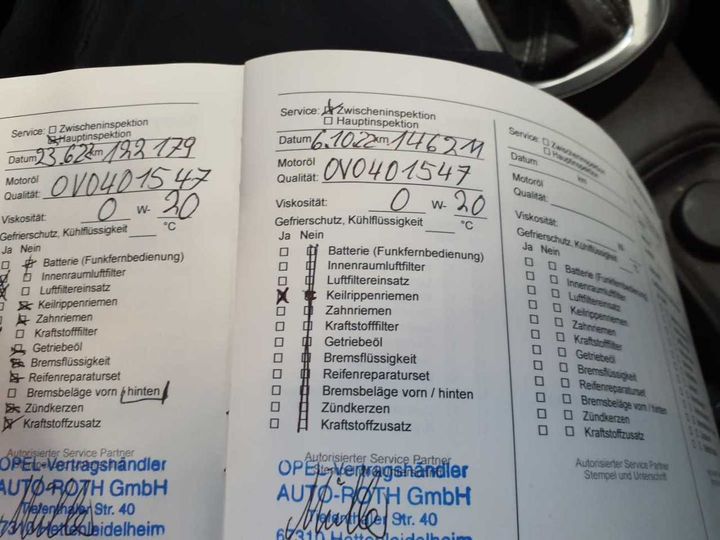 Service: Zwischeninspektion
Hauptinspektion
Datum 23.6.22 km 122 179
Motoröl
Qualität: OV0401547
Viskosität: 0 W- 20
Gefrierschutz, Kühlflüssigkeit °C
Ja Nein
Batterie (Funkfernbedienung)
Innenraumluftfilter
Luftfiltereinsatz
Keilrippenriemen
Zahnriemen
Kraftstofffilter
Getriebeöl
Bremsflüssigkeit
Reifenreparaturset
Bremsbeläge vorn / hinten
Zündkerzen
Kraftstoffzusatz
Autorisierter Service Partner
OPEL-Vertragshändler
AUTO-ROTH GmbH
Tiefenthaler Str. 40
67310 Hettenleidelheim
Service: Zwischeninspektion
Hauptinspektion
Datum 6.10.22 km 146211
Motoröl
Qualität: OV0401547
Viskosität: 0 W- 20
Gefrierschutz, Kühlflüssigkeit °C
Ja Nein
Batterie (Funkfernbedienung)
Innenraumluftfilter
Luftfiltereinsatz
Keilrippenriemen
Zahnriemen
Kraftstofffilter
Getriebeöl
Bremsflüssigkeit
Reifenreparaturset
Bremsbeläge vorn / hinten
Zündkerzen
Kraftstoffzusatz
Autorisierter Service Partner
OPEL-Vertragshändler
AUTO-ROTH GmbH
Tiefenthaler Str. 40
67310 Hettenleidelheim
Service: Zwischeninspektion
Hauptinspektion
Datum km
Motoröl
Qualität:
Viskosität: W-
Gefrierschutz, Kühlflüssigkeit °C
Ja Nein
Batterie (Funkfernbedienung)
Innenraumluftfilter
Luftfiltereinsatz
Keilrippenriemen
Zahnriemen
Kraftstofffilter
Getriebeöl
Bremsflüssigkeit
Reifenreparaturset
Bremsbeläge vorn / hinten
Zündkerzen
Kraftstoffzusatz
Autorisierter Service Partner
Stempel und Unterschrift